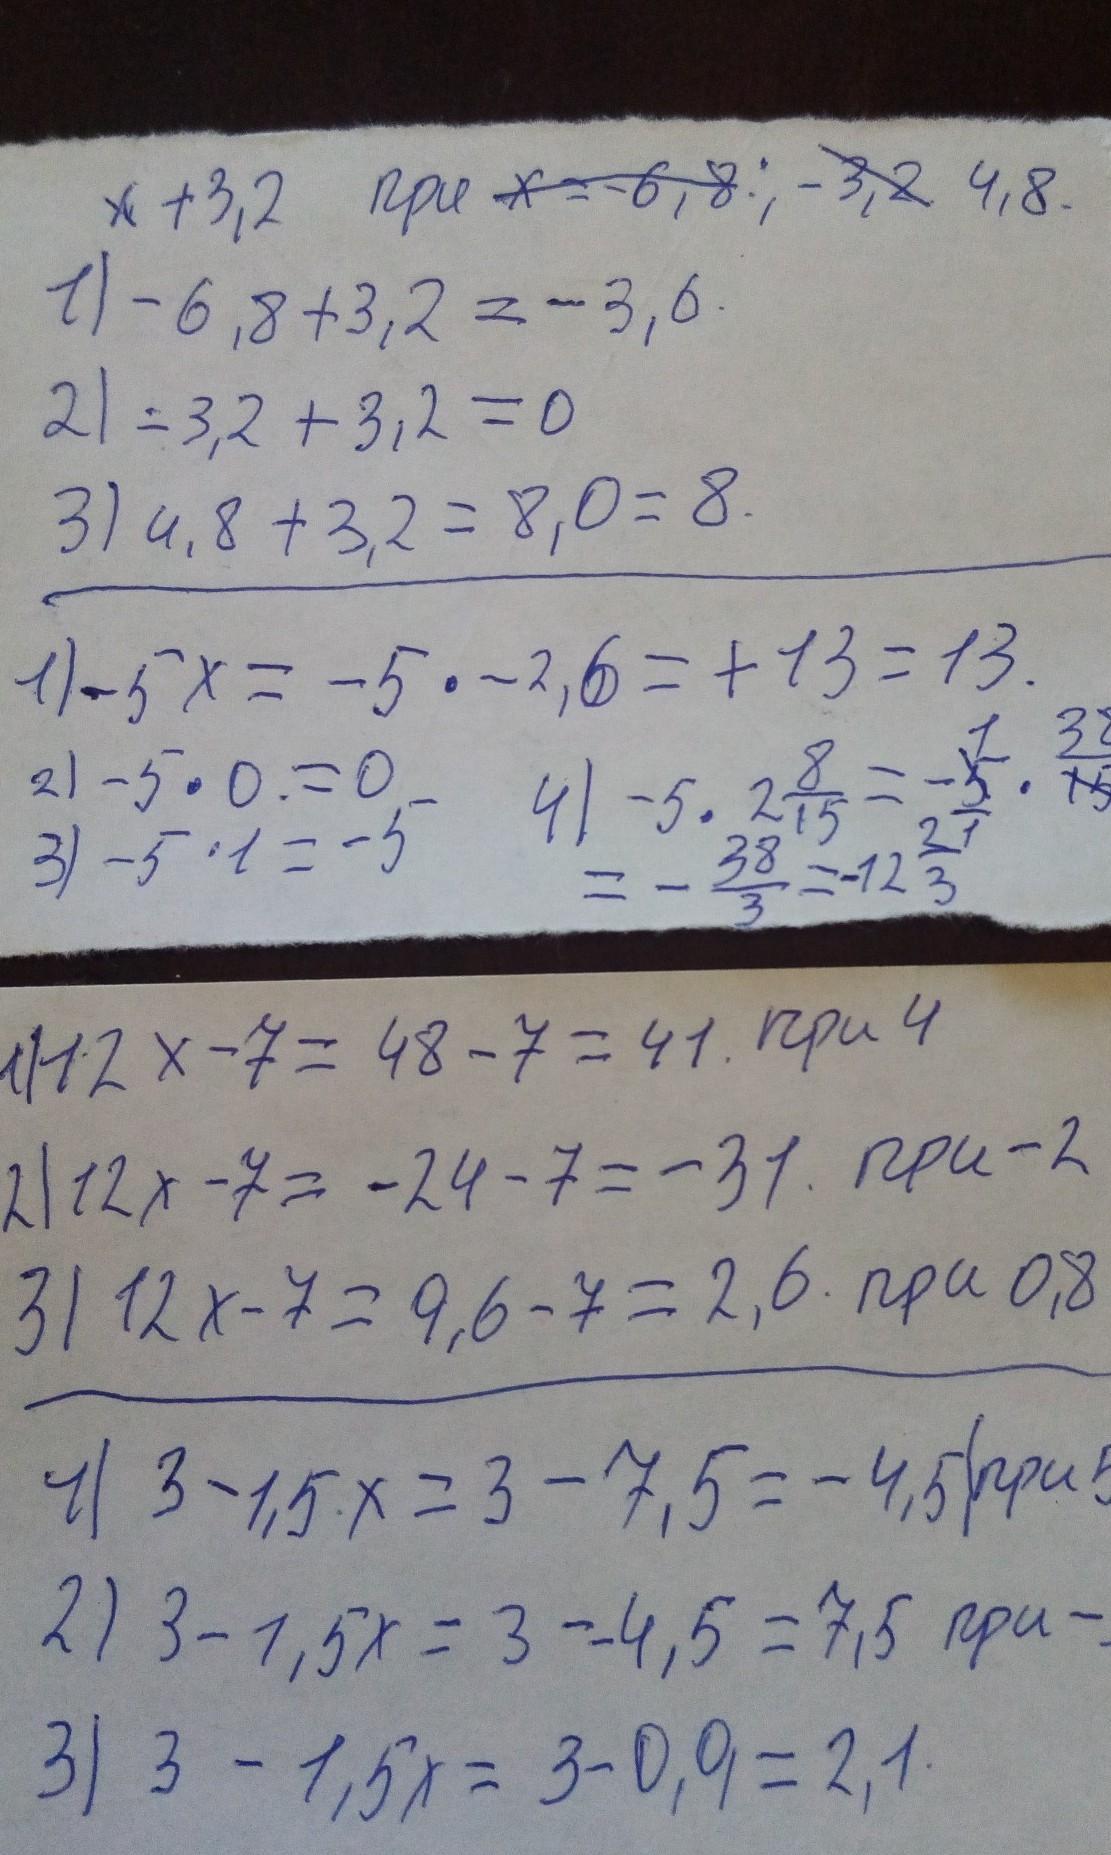 x + 3,2 при x = -6,8; -3,2 4,8.
1) -6,8 + 3,2 = -3,6.
2) -3,2 + 3,2 = 0
3) 4,8 + 3,2 = 8,0 = 8.
1) -5x = -5 · -2,6 = +13 = 13.
2) -5 · 0 = 0
3) -5 · 1 = -5
4) -5 · 2 8/15 = - 5/1 · 38/15
= - 38/3 = -12 2/3
1) 12x - 7 = 48 - 7 = 41. при 4
2) 12x - 7 = -24 - 7 = -31. при -2
3) 12x - 7 = 9,6 - 7 = 2,6. при 0,8
1) 3 - 1,5x = 3 - 7,5 = -4,5 при 5
2) 3 - 1,5x = 3 - -4,5 = 7,5 при -
3) 3 - 1,5x = 3 - 0,9 = 2,1.